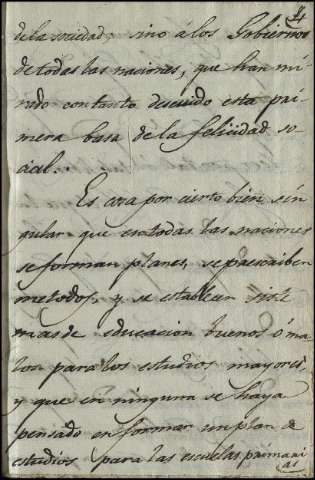 de la sociedad, sino á los Gobiernos
de todas las naciones, que han mi-
rado con tanto descuido esta pri
mera basa de la felicidad so-
cial.
Es cosa por cierto bien sin-
gular que en todas las naciones
se forman planes, se prescriben
metodos, y se establecen siste
mas de educacion buenos ó ma
los para los estudios mayores,
y que en ninguna se haya
pensado en formar un plan de
estudios para las escuelas primari
as